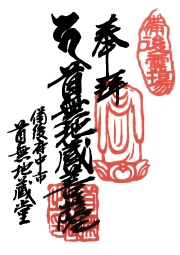 奉拝
備後霊場
首無地蔵菩薩
備後府中市
首無地蔵堂